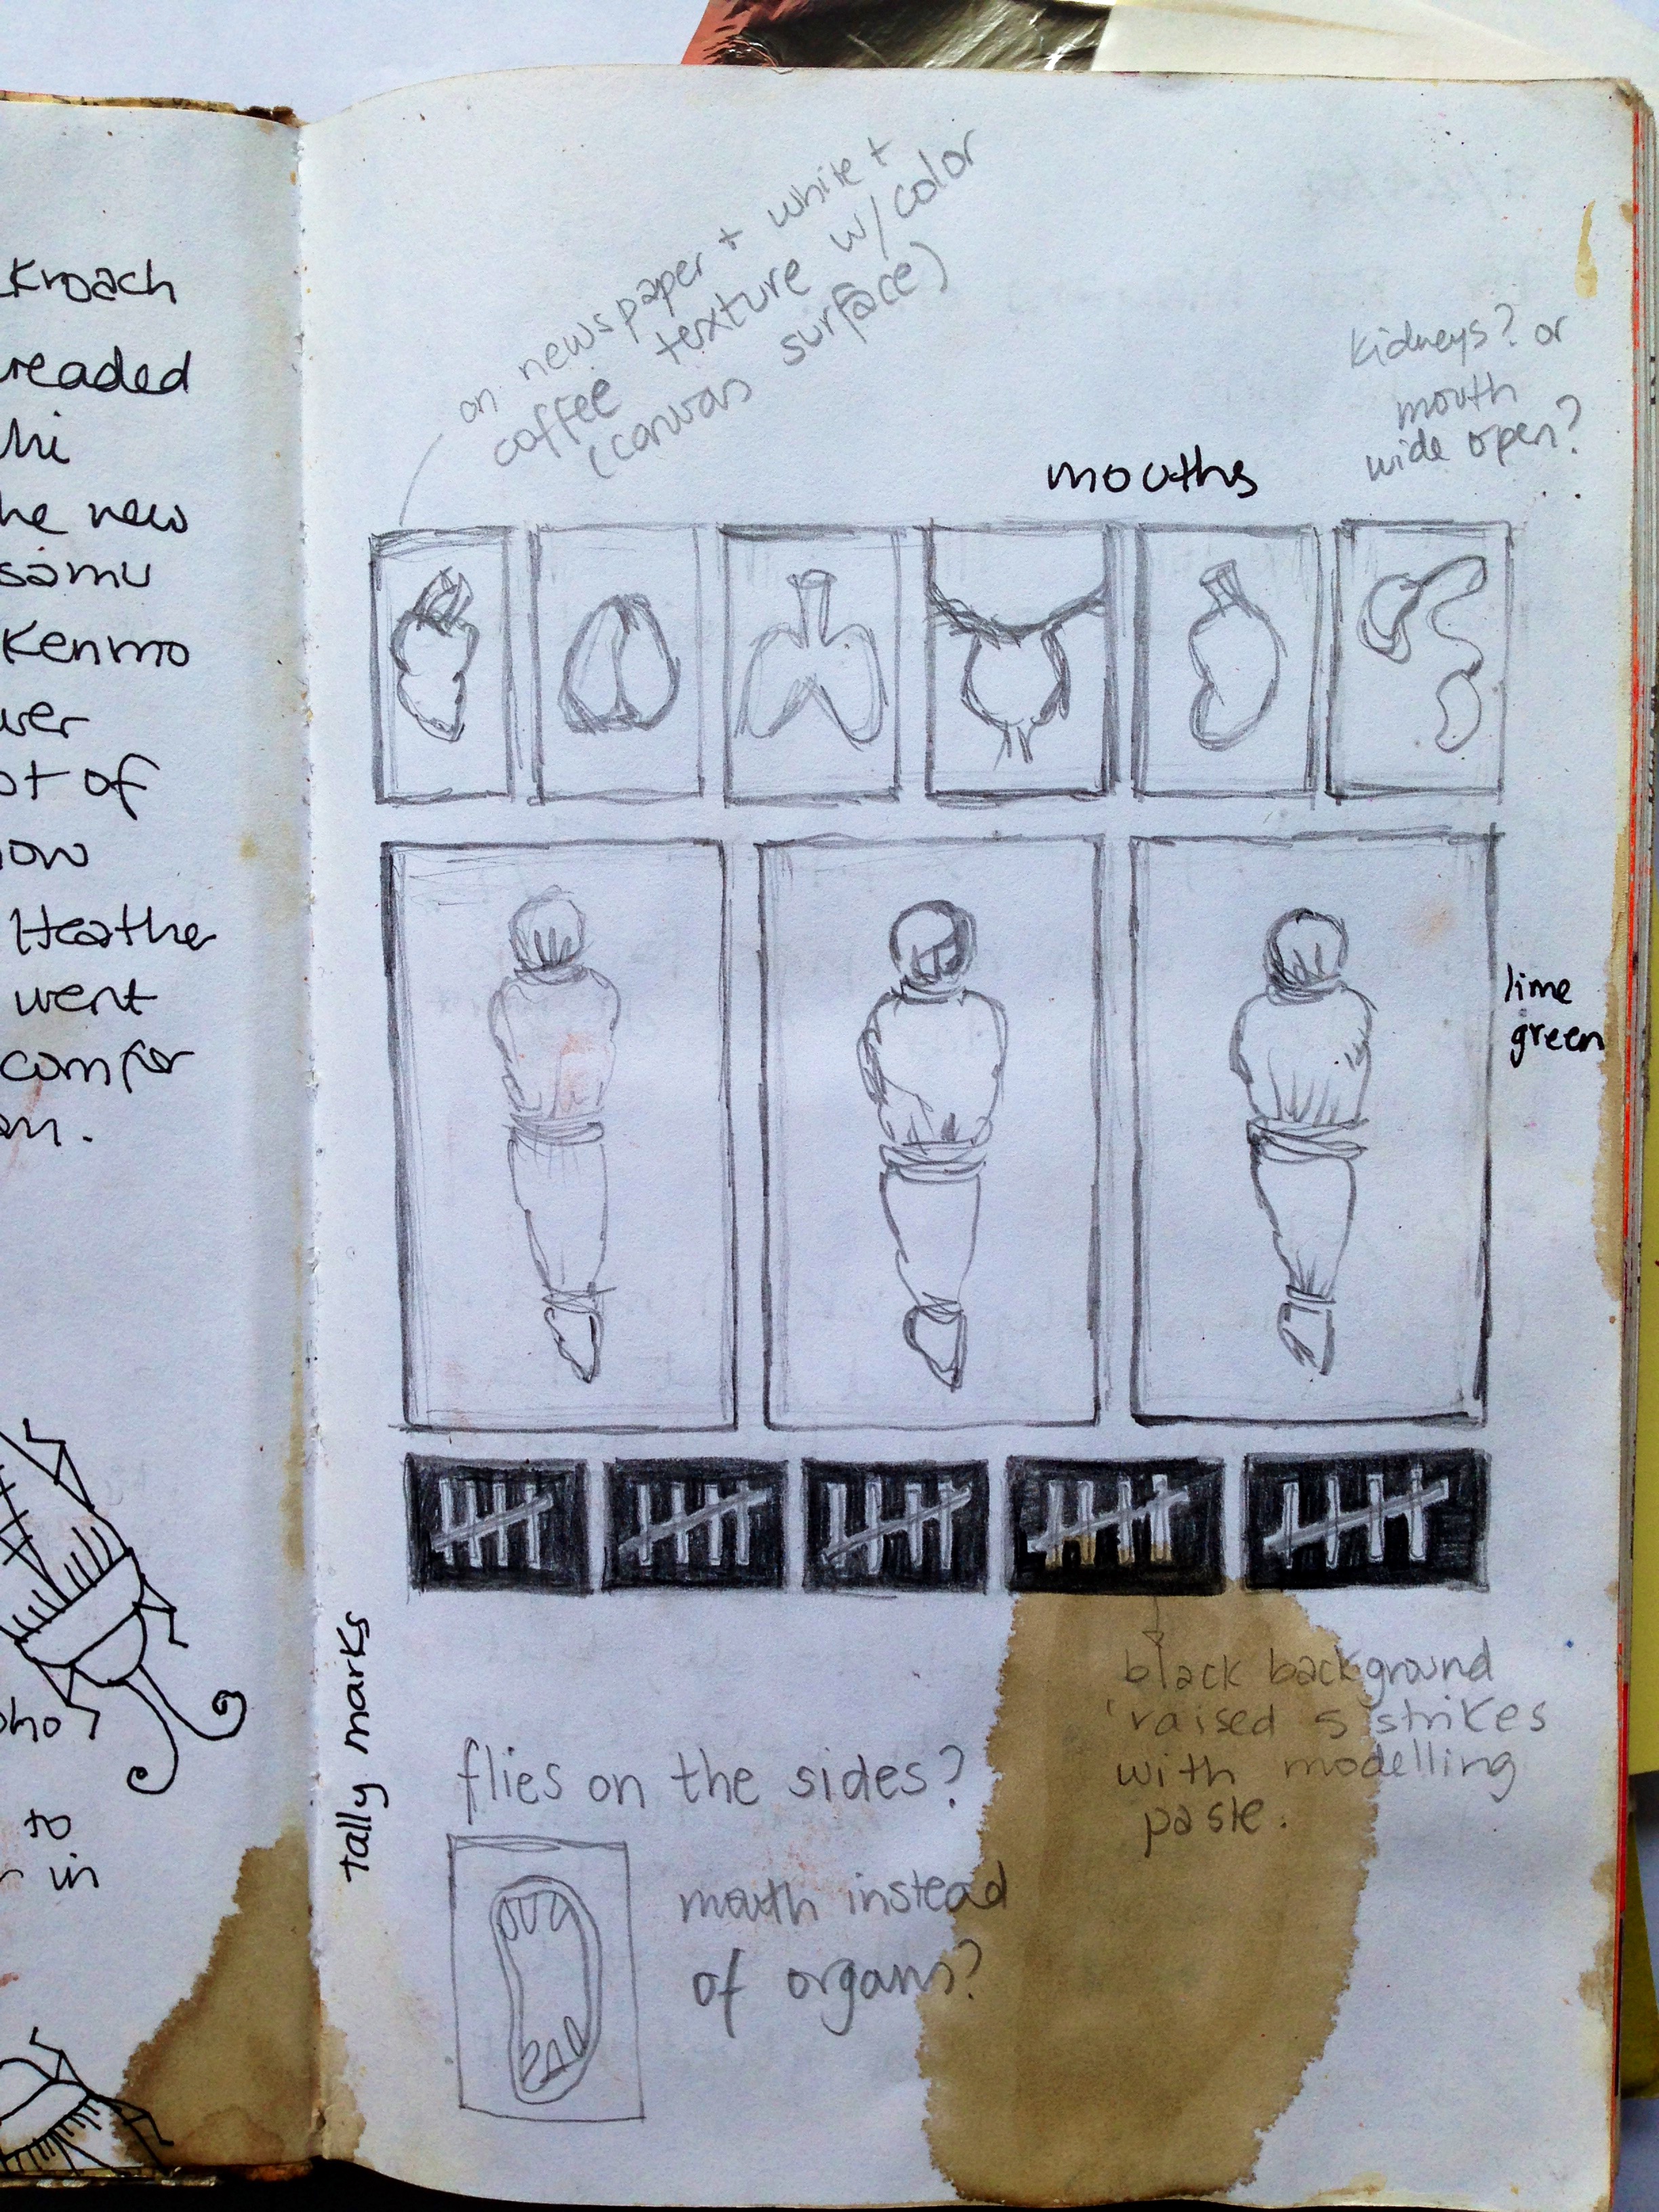 kroach
readed
hi
he new
samu
Kenmo
wer
ot of
now
Heather
went
comfor
on.
oho
to
in
on newspaper + white +
coffee texture w/color
(canvas surface)
kidneys? or
mouth
wide open?
mouths
lime
green
tally marks
black background
raised 5 strikes
with modelling
paste.
flies on the sides?
mouth instead
of organs?